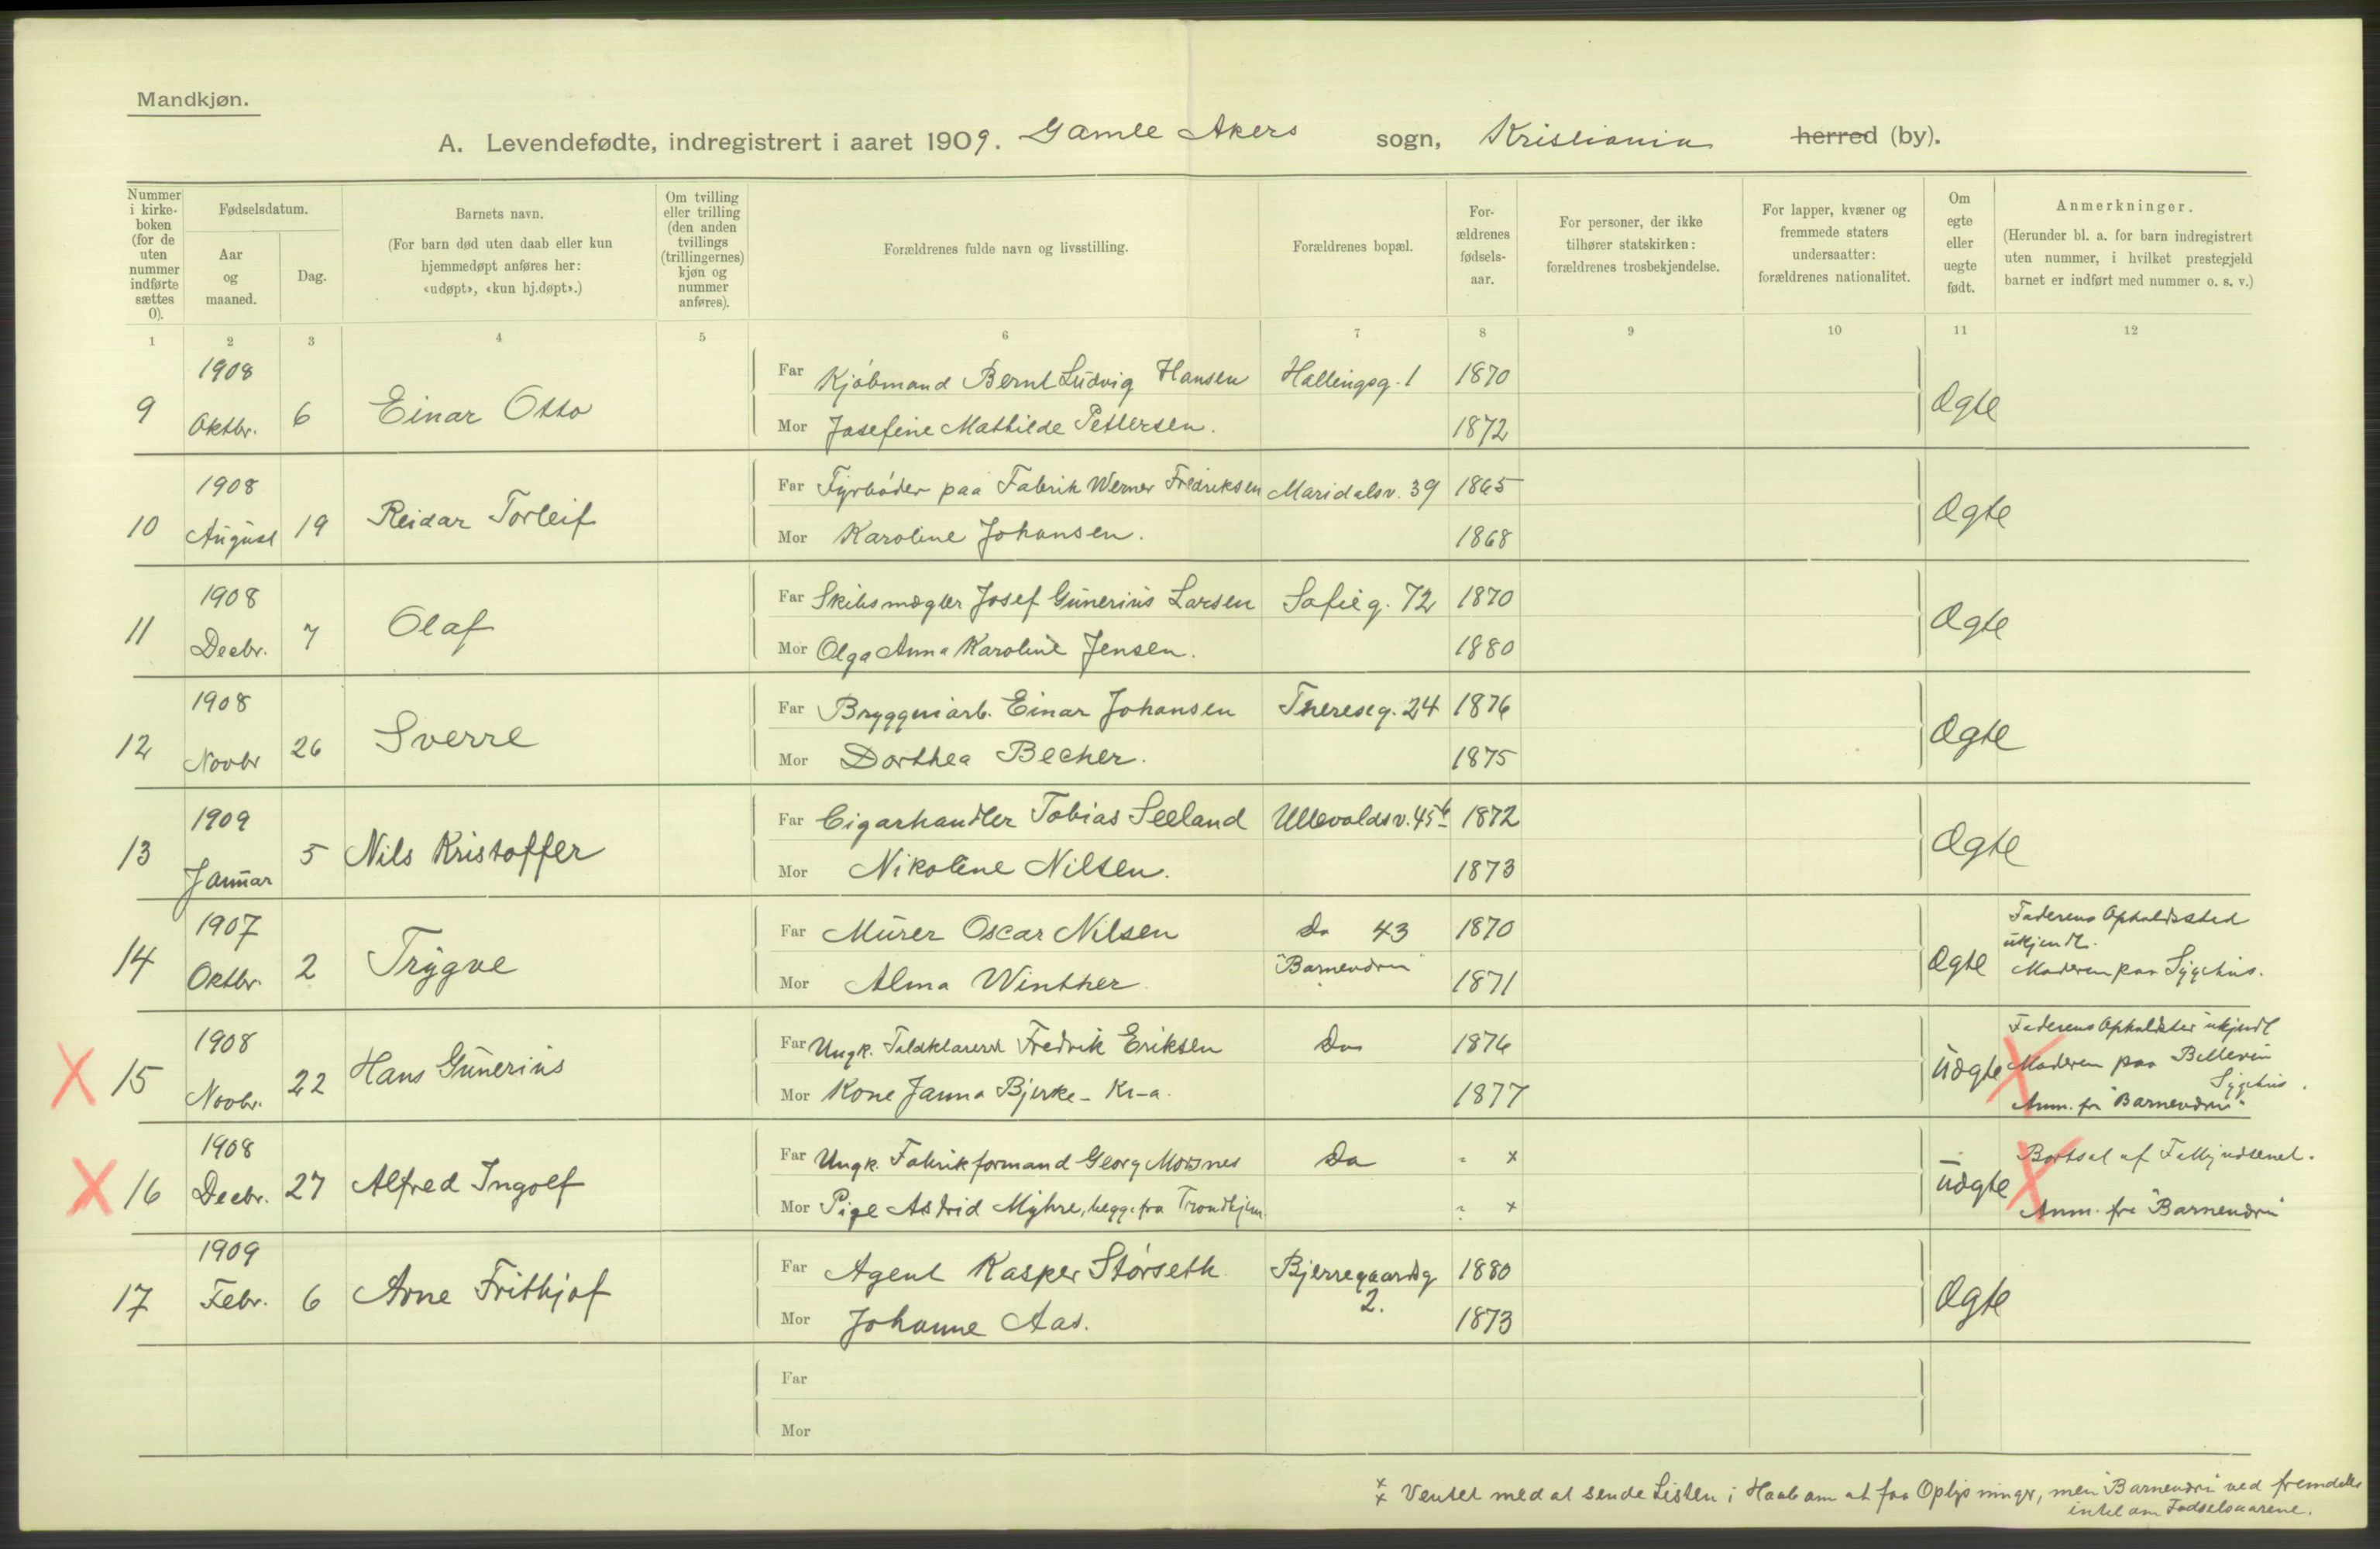 Mandkjøn.
A. Levendefødte, indregistrert i aaret 1909. Gamle Akers sogn, Kristiania herred (by).
Nummer i kirke-boken (for de uten nummer indførte sættes 0).
Fødselsdatum.
Aar og maaned.
Dag.
Barnets navn.
(For barn død uten daab eller kun hjemmedøpt anføres her: «udøpt», «kun hj.døpt».)
Om tvilling eller trilling (den anden tvillings (trillingernes) kjøn og nummer anføres).
Forældrenes fulde navn og livsstilling.
Forældrenes bopæl.
For-ældrenes fødsels-aar.
For personer, der ikke tilhører statskirken: forældrenes trosbekjendelse.
For lapper, kvæner og fremmede staters undersaatter: forældrenes nationalitet.
Om egte eller uegte født.
Anmerkninger.
(Herunder bl. a. for barn indregistrert uten nummer, i hvilket prestegjeld barnet er indført med nummer o. s. v.)
1 2 3 4 5 6 7 8 9 10 11 12
1908
Far Kjøbmand Bernt Ludvig Hansen Hallingsg. 1 1870
9 Oktbr. 6 Einar Otto Ægte
Mor Josefine Mathilde Pettersen. 1872
1908
Far Fyrbøder paa Fabrik Werner Fredriksen Maridalsv. 39 1865
10 August 19 Reidar Torleif Ægte
Mor Karoline Johansen. 1868
1908
Far Skibsmægler Josef Gunerius Larsen Sofieg. 72 1870
11 Decbr. 7 Olaf Ægte
Mor Olga Anna Karoline Jensen. 1880
1908
Far Bryggeriarb. Einar Johansen Thereseg. 24 1876
12 Novbr 26 Sverre Ægte
Mor Dorthea Becher. 1875
1909
Far Cigarhandler Tobias Seeland Ullevoldsv. 45b 1872
13 Januar 5 Nils Kristoffer Ægte
Mor Nikoline Nilsen. 1873
1907
Far Murer Oscar Nilsen Do 43 1870
14 Oktbr. 2 Trygve Ægte
Mor Alma Winther. "Barnendrn" 1871
Faderens Opholdssted
ukjendt.
Moderen paa Sygehus.
1908
Far Ungk. Toldklarerer Fredrik Eriksen Do 1876
15 Novbr. 22 Hans Gunerius Uægte
Mor Kone Janna Bjerke - Kr-a. 1877
Faderens Opholdster ukjendt
Moderen paa Bellevue
Sygehus.
Anm. fra "Barnendrn"
1908
Far Ungk. Fabrikformand Georg Da " x
16 Decbr. 27 Alfred Ingolf Uægte
Mor Pige Astrid Myhre, begge fra Trondhjem " x
Bortsat af
Anm. fra "Barnendrn"
1909
Far Agent Kasper Størseth Bjerregaardsg 2. 1880
17 Febr. 6 Arne Frithjof Ægte
Mor Johanne Aas. 1873
Far
Mor
x Ventet med at sende Listen i Haab om at faa Oplysninger, men "Barnendrn" ved fremdeles
intet om Fødselsaarene.